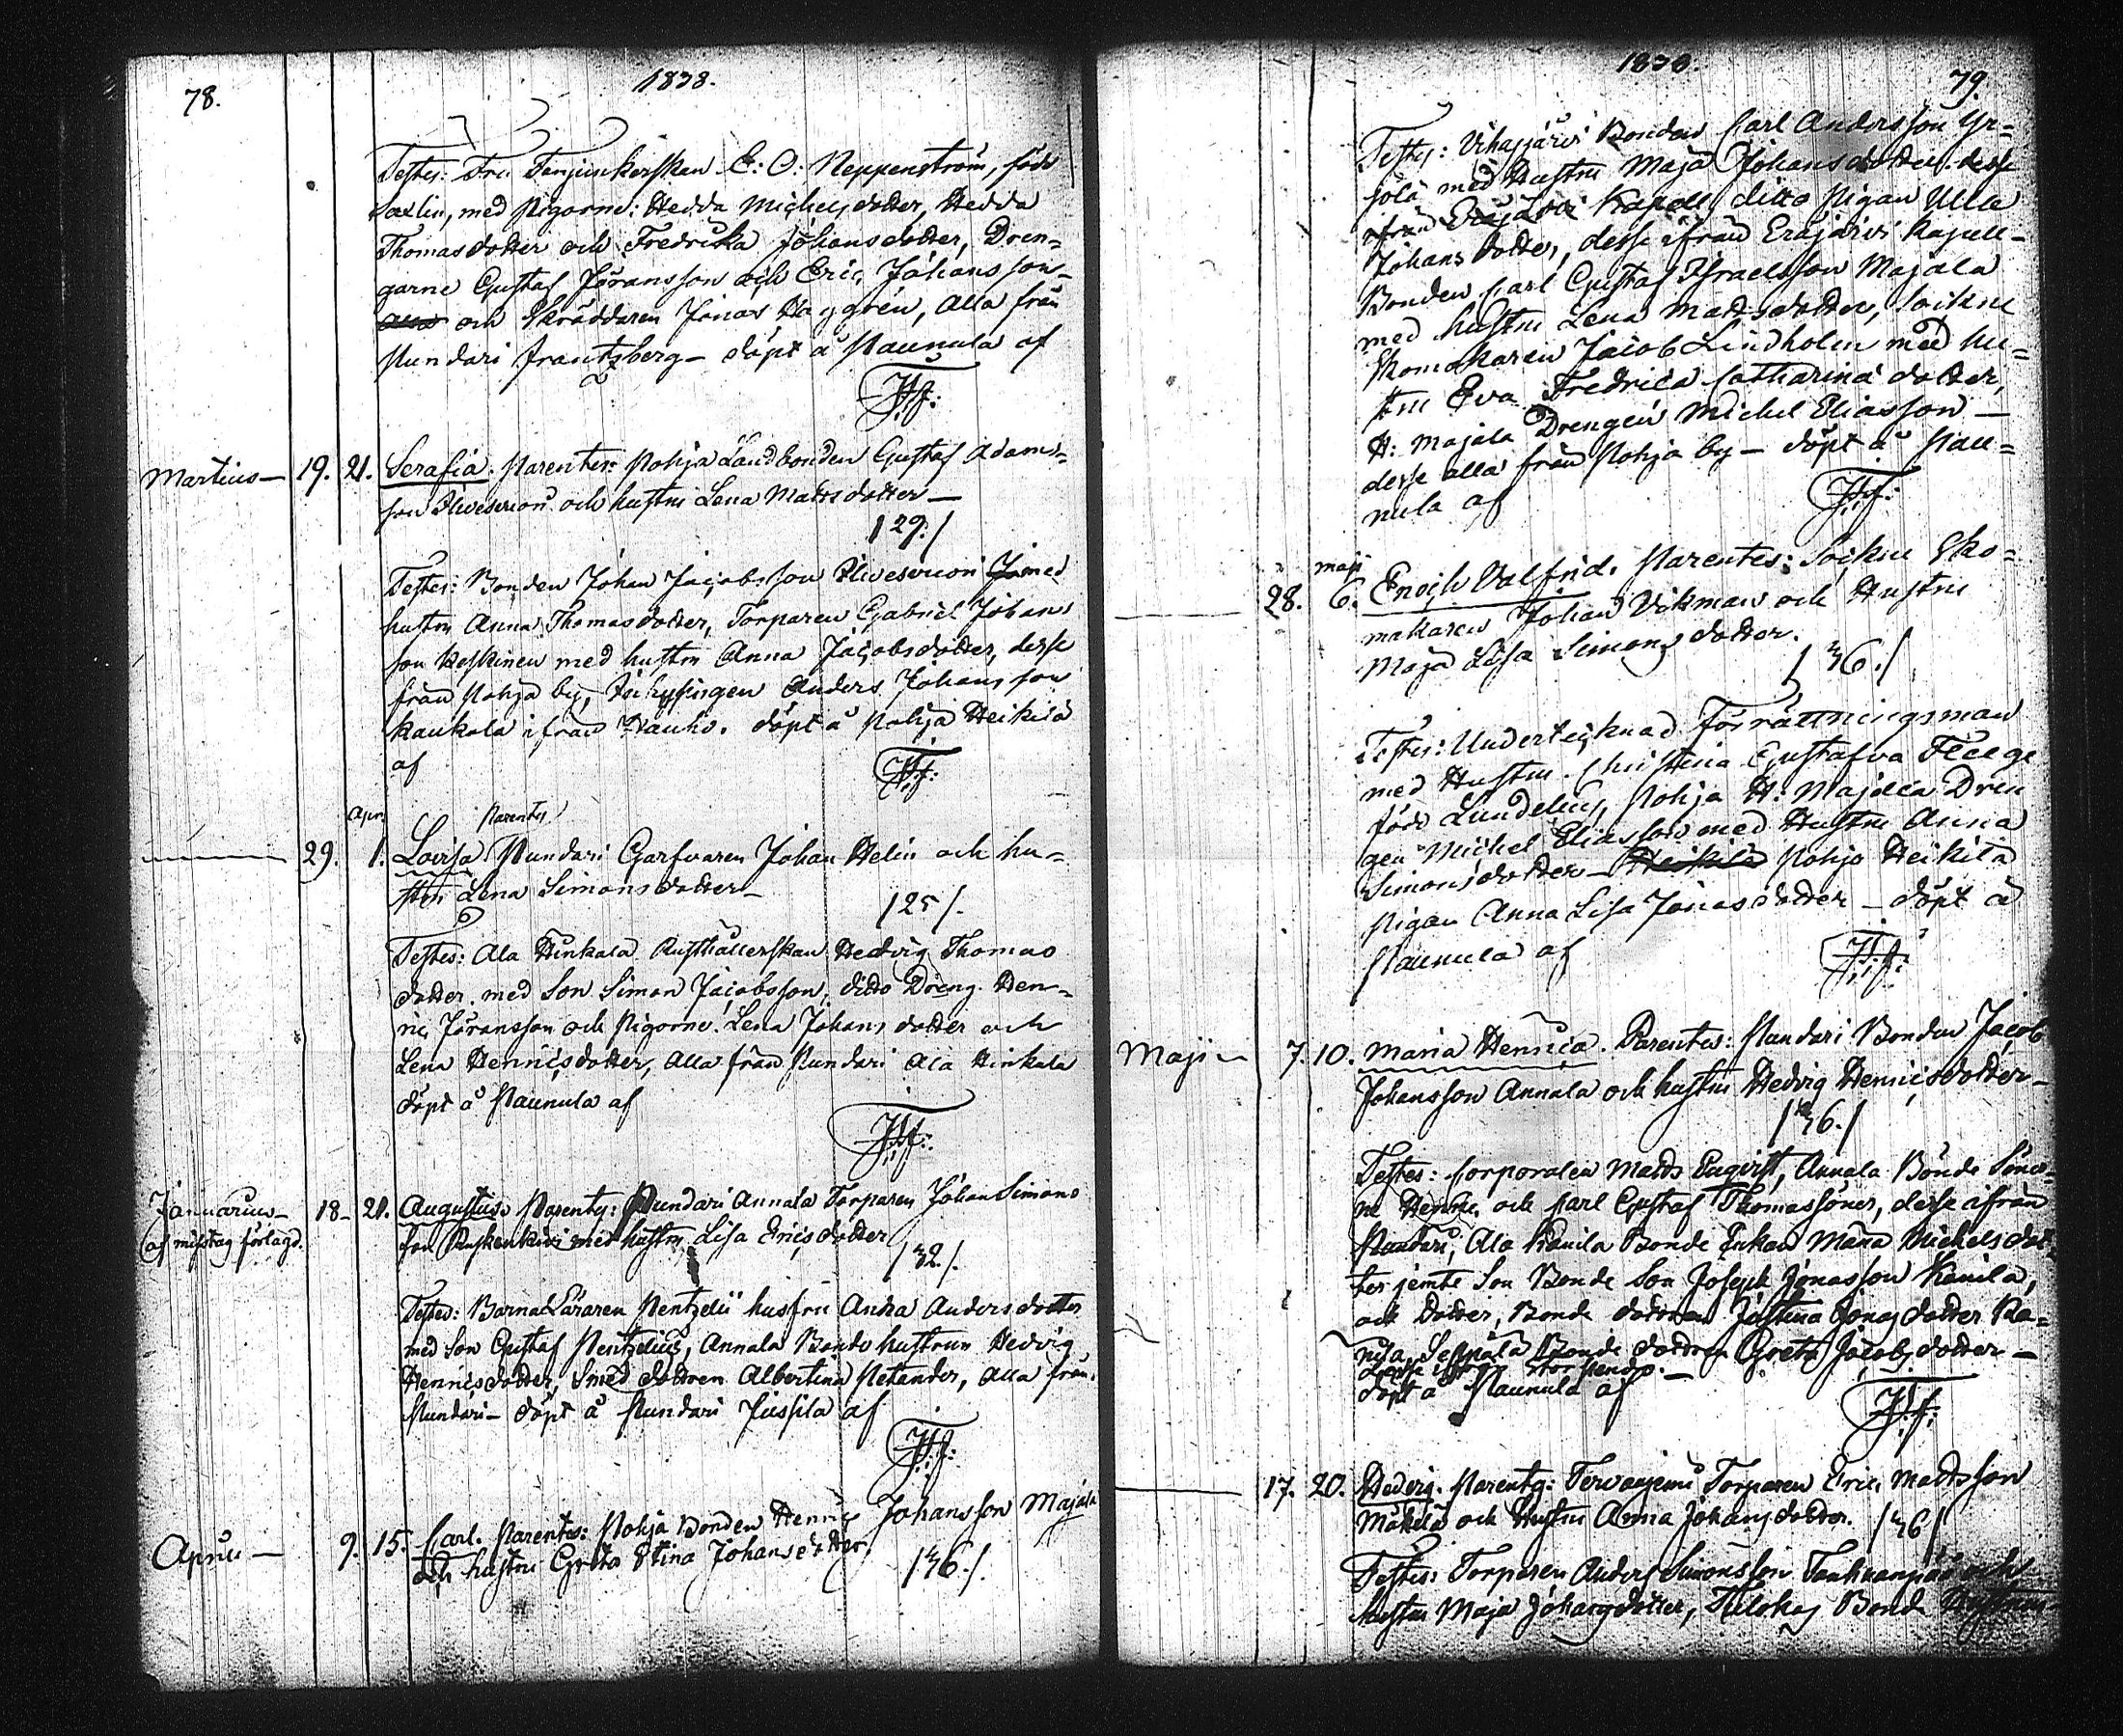 78.
1838.
Testes: Fru Fanjunkerskan E: O: Neppenström, född
Saxlin, med Pigorne: Hedda Michelsdotter, Hedda
Thomasdotter och Fredrika Johansdotter, Dren-
garne Gustaf Jöransson och Eric Johansson
och Skräddaren Jonas Haggrén, alla från
Pundari Frantzberg – döpt å Naunula af
Martius — 19. 21. Serafia. Parentes: Pohja Landbonden Gustaf Adams-
son och hustru Lena Mattsdotter —
129./
Testes: Bonden Johan Jacobsson med
hustru Anna Thomasdotter, Torparen Gabriel Johans
son Keskinen med hustru Anna Jacobsdotter, desse
från Pohja by, Anders Johansson
Kaukola ifrån Hauho. döpt å Pohja Heikilä
af
Apr. Parentes
29. 1. Lovisa Pundari Garfvaren Johan Helin och hu-
stru Lena Simonsdotter –
125/.
Testes: Ala Hinkala Rusthållerskan Hedvig Thomas
dotter med Son Simon Jacobsson, ditto Dräng Hen-
ric Jöransson och Pigorne Lena Johansdotter och
Lena Henricsdotter, alla från Pundari Ala Hinkala
döpt å Naunula af
Januarius – 18. 21. Augustus. Parentes: Pundari Annala Torparen Johan Simons
af misstag förlagd.
son med hustru Lisa Ericsdotter
132/.
Testes: Barna Läraren Pentzelii husfru Anna Andersdotter
med Son Gustaf Pentzelius, Annala Bonde hustrun Hedvig
Henricsdotter, Smed dottren Albertina Petander, alla från
Pundari – döpt å Pundari Jussila af
Aprill — 9. 15. Carl. Parentes: Pohja Bonden Henric Johansson Majala
och hustru Greta Stina Johansdotter.
136./.
1838.
79.
Testes: Vihasjärvi Bonden Carl Andersson Yr-
jölä med Hustru Maja Johansdotter desse
ifrån Eräjärvi Kapell, ditto Pigan Ulla
Johansdotter, desse ifrån Eräjärvi Kapell –
Bonden Carl Gustaf Israelsson Majala
med hustru Lena Mattsdotter, Sockne
Skomakaren Jacob Lindholm med hu-
stru Eva Fredrica Catharina dotter,
H: Majala Drengen Michel Eliasson —
desse alla från Pohja by – döpt å Nau-
nula af
maji
28. 6. Enoch Valfrid. Parentes: Sockne Sko-
makaren Johan Vikman och Hustru
Maja Lisa Simonsdotter.
136./
Testes: Undertecknad Förrättningsman
med Hustru Christina Gustafva
född Lundelin, Pohja H: Majala Dren
gen Michel Eliasson med Hustru Anna
Simonsdotter – Heikilä Pohja Heikilä
Pigan Anna Lisa Jonasdotter – döpt å
Naunula af
Maji – 7. 10. Maria Henrica. Parentes: Pundari Bonden Jacob
Johansson Annala och hustru Hedvig Henricsdotter –
136./
Testes: Corporalen Matts Enqvist, Annala Bonde Söner-
ne Henric och Carl Gustaf Thomassöner, desse ifrån
Pundari, Ala Knuila Bonde Enkan Maria Michelsdot-
ter jemte Son Bonde Son Joseph Jonasson
och Dotter, Bonde dottren Justina Jonasdotter
Seppälä Bonde dottren Greta Jacobsdotter —
döpt å Naunula af
17. 20. Hedvig. Parentes: Torparen Eric Mattsson
Mäkilä och Hustru Anna Johansdotter. 136/
Testes: Torparen Anders Simonsson och
hustru Maja Johansdotter, Bonde Hustrun